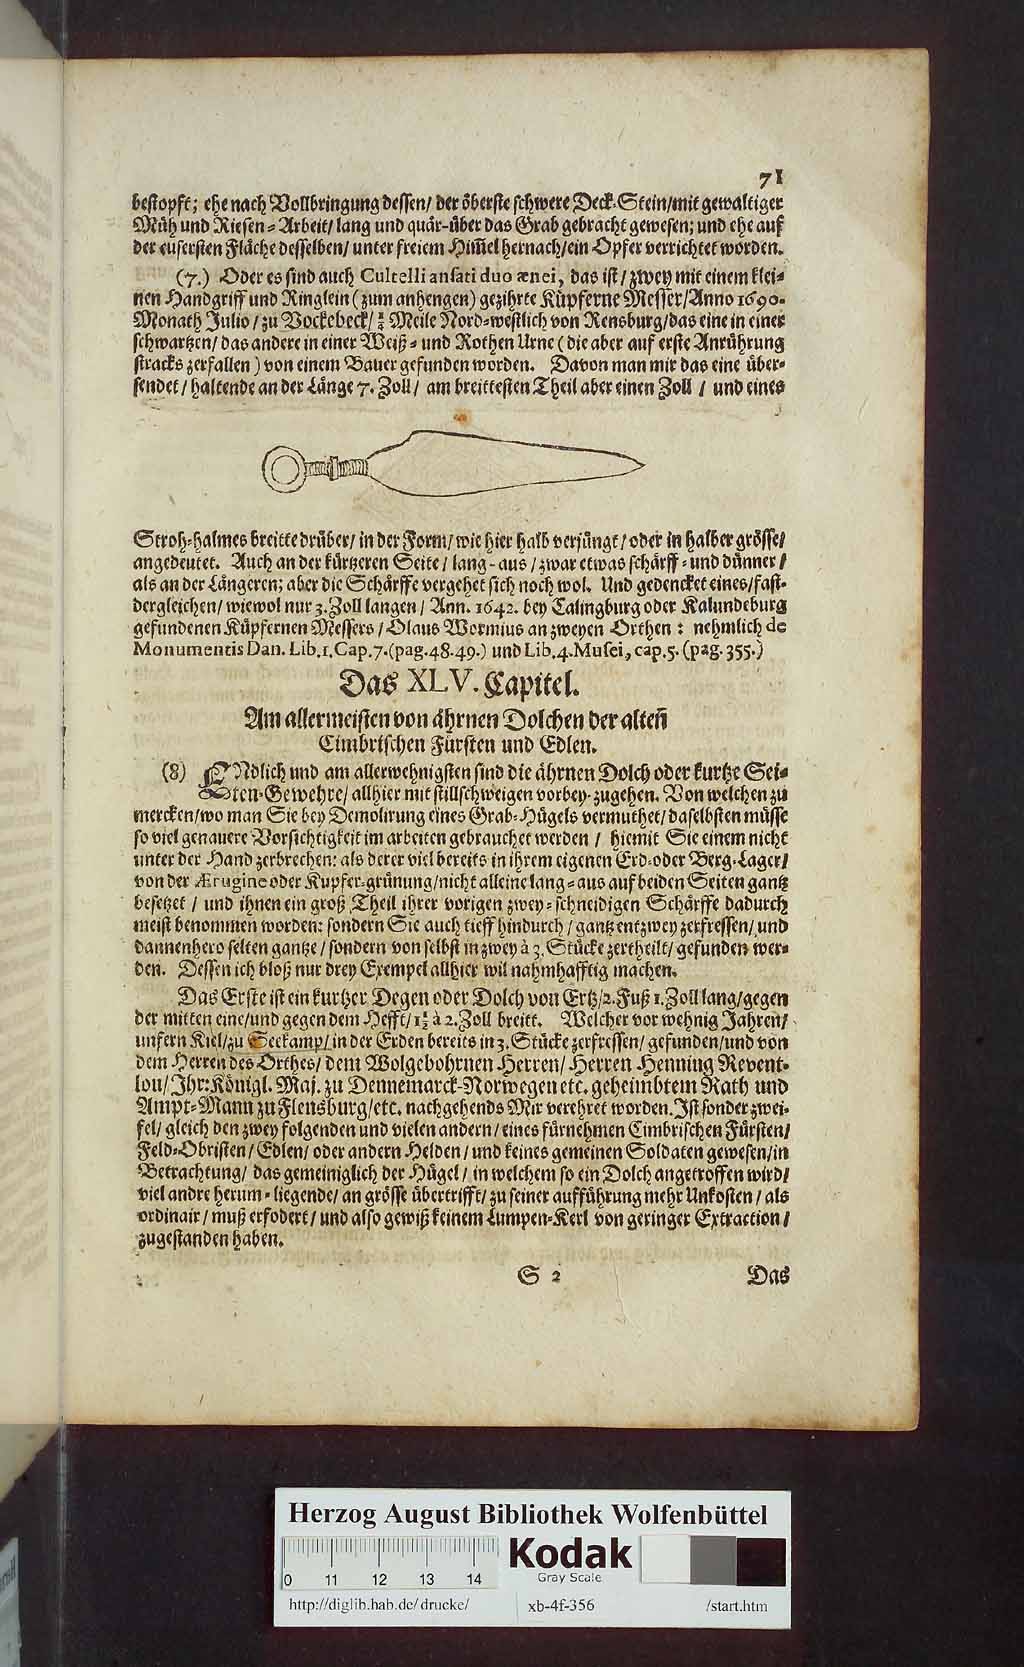 71
bestopft; ehe nach Vollbringung dessen/ der öberste schwere Deck-Stein/mit gewaltiger
Müh und Riesen-Arbeit/ lang und quär-über das Grab gebracht gewesen; und ehe auf
der eusersten Fläche desselben/ unter freiem Him̃el hernach/ein Opfer verrichtet worden.
(7.) Oder es sind auch Cultelli ansati duo ænei, das ist/ zwey mit einem klei-
nen Handgriff und Ringlein (zum anhengen) gezihrte Küpferne Messer/Anno 1690.
Monath Julio/ zu Vockebeck/ Meile Nord-westlich von Rensburg/das eine in einer
schwartzen/ das andere in einer Weiß- und Rothen Urne (die aber auf erste Anrührung
stracks zerfallen) von einem Bauer gefunden worden. Davon man mir das eine über-
sendet/ haltende an der Länge 7. Zoll/ am breittesten Theil aber einen Zoll / und eines
Stroh-halmes breitte drüber/ in der Form/ wie hier halb verjüngt/ oder in halber grösse/
angedeutet. Auch an der kürtzeren Seite/ lang-aus/ zwar etwas schärff- und dünner/
als an der Längeren; aber die Schärffe vergehet sich noch wol. Und gedencket eines/fast-
dergleichen/ wiewol nur 3. Zoll langen/ Ann. 1642. bey Calingburg oder Kalundeburg
gefundenen Küpfernen Messers/ Olaus Wormius an zweyen Orthen: nehmlich de
Monumentis Dan. Lib.1.Cap.7.(pag.48.49.) und Lib.4.Musei, cap.5. (pag.355.)
Das XLV. Capitel.
Am allermeisten von ährnen Dolchen der alten̄
Cimbrischen Fürsten und Edlen.
(8) ENdlich und am allerwehnigsten sind die ährnen Dolch oder kurtze Sei-
ten-Gewehre/ allhier mit stillschweigen vorbey-zugehen. Von welchen zu
mercken/wo man Sie bey Demolirung eines Grab-Hügels vermuthet/ daselbsten müsse
so viel genauere Vorsichtigkeit im arbeiten gebrauchet werden / hiemit Sie einem nicht
unter der Hand zerbrechen: als derer viel bereits in ihrem eigenen Erd-oder Berg-Lager/
von der Ærugine oder Kupfer-grünung/nicht alleine lang-aus auf beiden Seiten gantz
besetzet / und ihnen ein groß Theil ihrer vorigen zwey-schneidigen Schärffe dadurch
meist benommen worden: sondern Sie auch tieff hindurch / gantz entzwey zerfressen/ und
dannenhero selten gantze / sondern von selbst in zwey à 3. Stücke zertheilt/ gefunden wer-
den. Dessen ich bloß nur drey Exempel allhier wil nahmhafftig machen.
Das Erste ist ein kurtzer Degen oder Dolch von Ertz/2. Fuß 1. Zoll lang/gegen
der mitten eine/und gegen dem Hefft/ 1½ à 2. Zoll breitt. Welcher vor wehnig Jahren/
unfern Kiel/zu Seekamp/ in der Erden bereits in 3. Stücke zerfressen/ gefunden/und von
dem Herren des Orthes/ dem Wolgebohrnen Herren/ Herren Henning Revent-
lou/ Ihr: Königl. Maj. zu Dennemarck-Norwegen etc. geheimbtem Rath und
Ampt-Mann zu Flensburg/etc. nachgehends Mir verehret worden. Ist sonder zwei-
fel/ gleich den zwey folgenden und vielen andern/ eines fürnehmen Cimbrischen Fürsten/
Feld-Obristen/ Edlen/ oder andern Helden / und keines gemeinen Soldaten gewesen/in
Betrachtung/ das gemeiniglich der Hügel / in welchem so ein Dolch angetroffen wird/
viel andre herum-liegende/ an grösse übertrifft/ zu seiner aufführung mehr Unkosten / als
ordinair / muß erfodert/ und also gewiß keinem Lumpen-Kerl von geringer Extraction /
zugestanden haben.
S 2 Das
Herzog August Bibliothek Wolfenbüttel
0 11 12 13 14
Kodak
Gray Scale
http://diglib.hab.de/drucke/ xb-4f-356 /start.htm